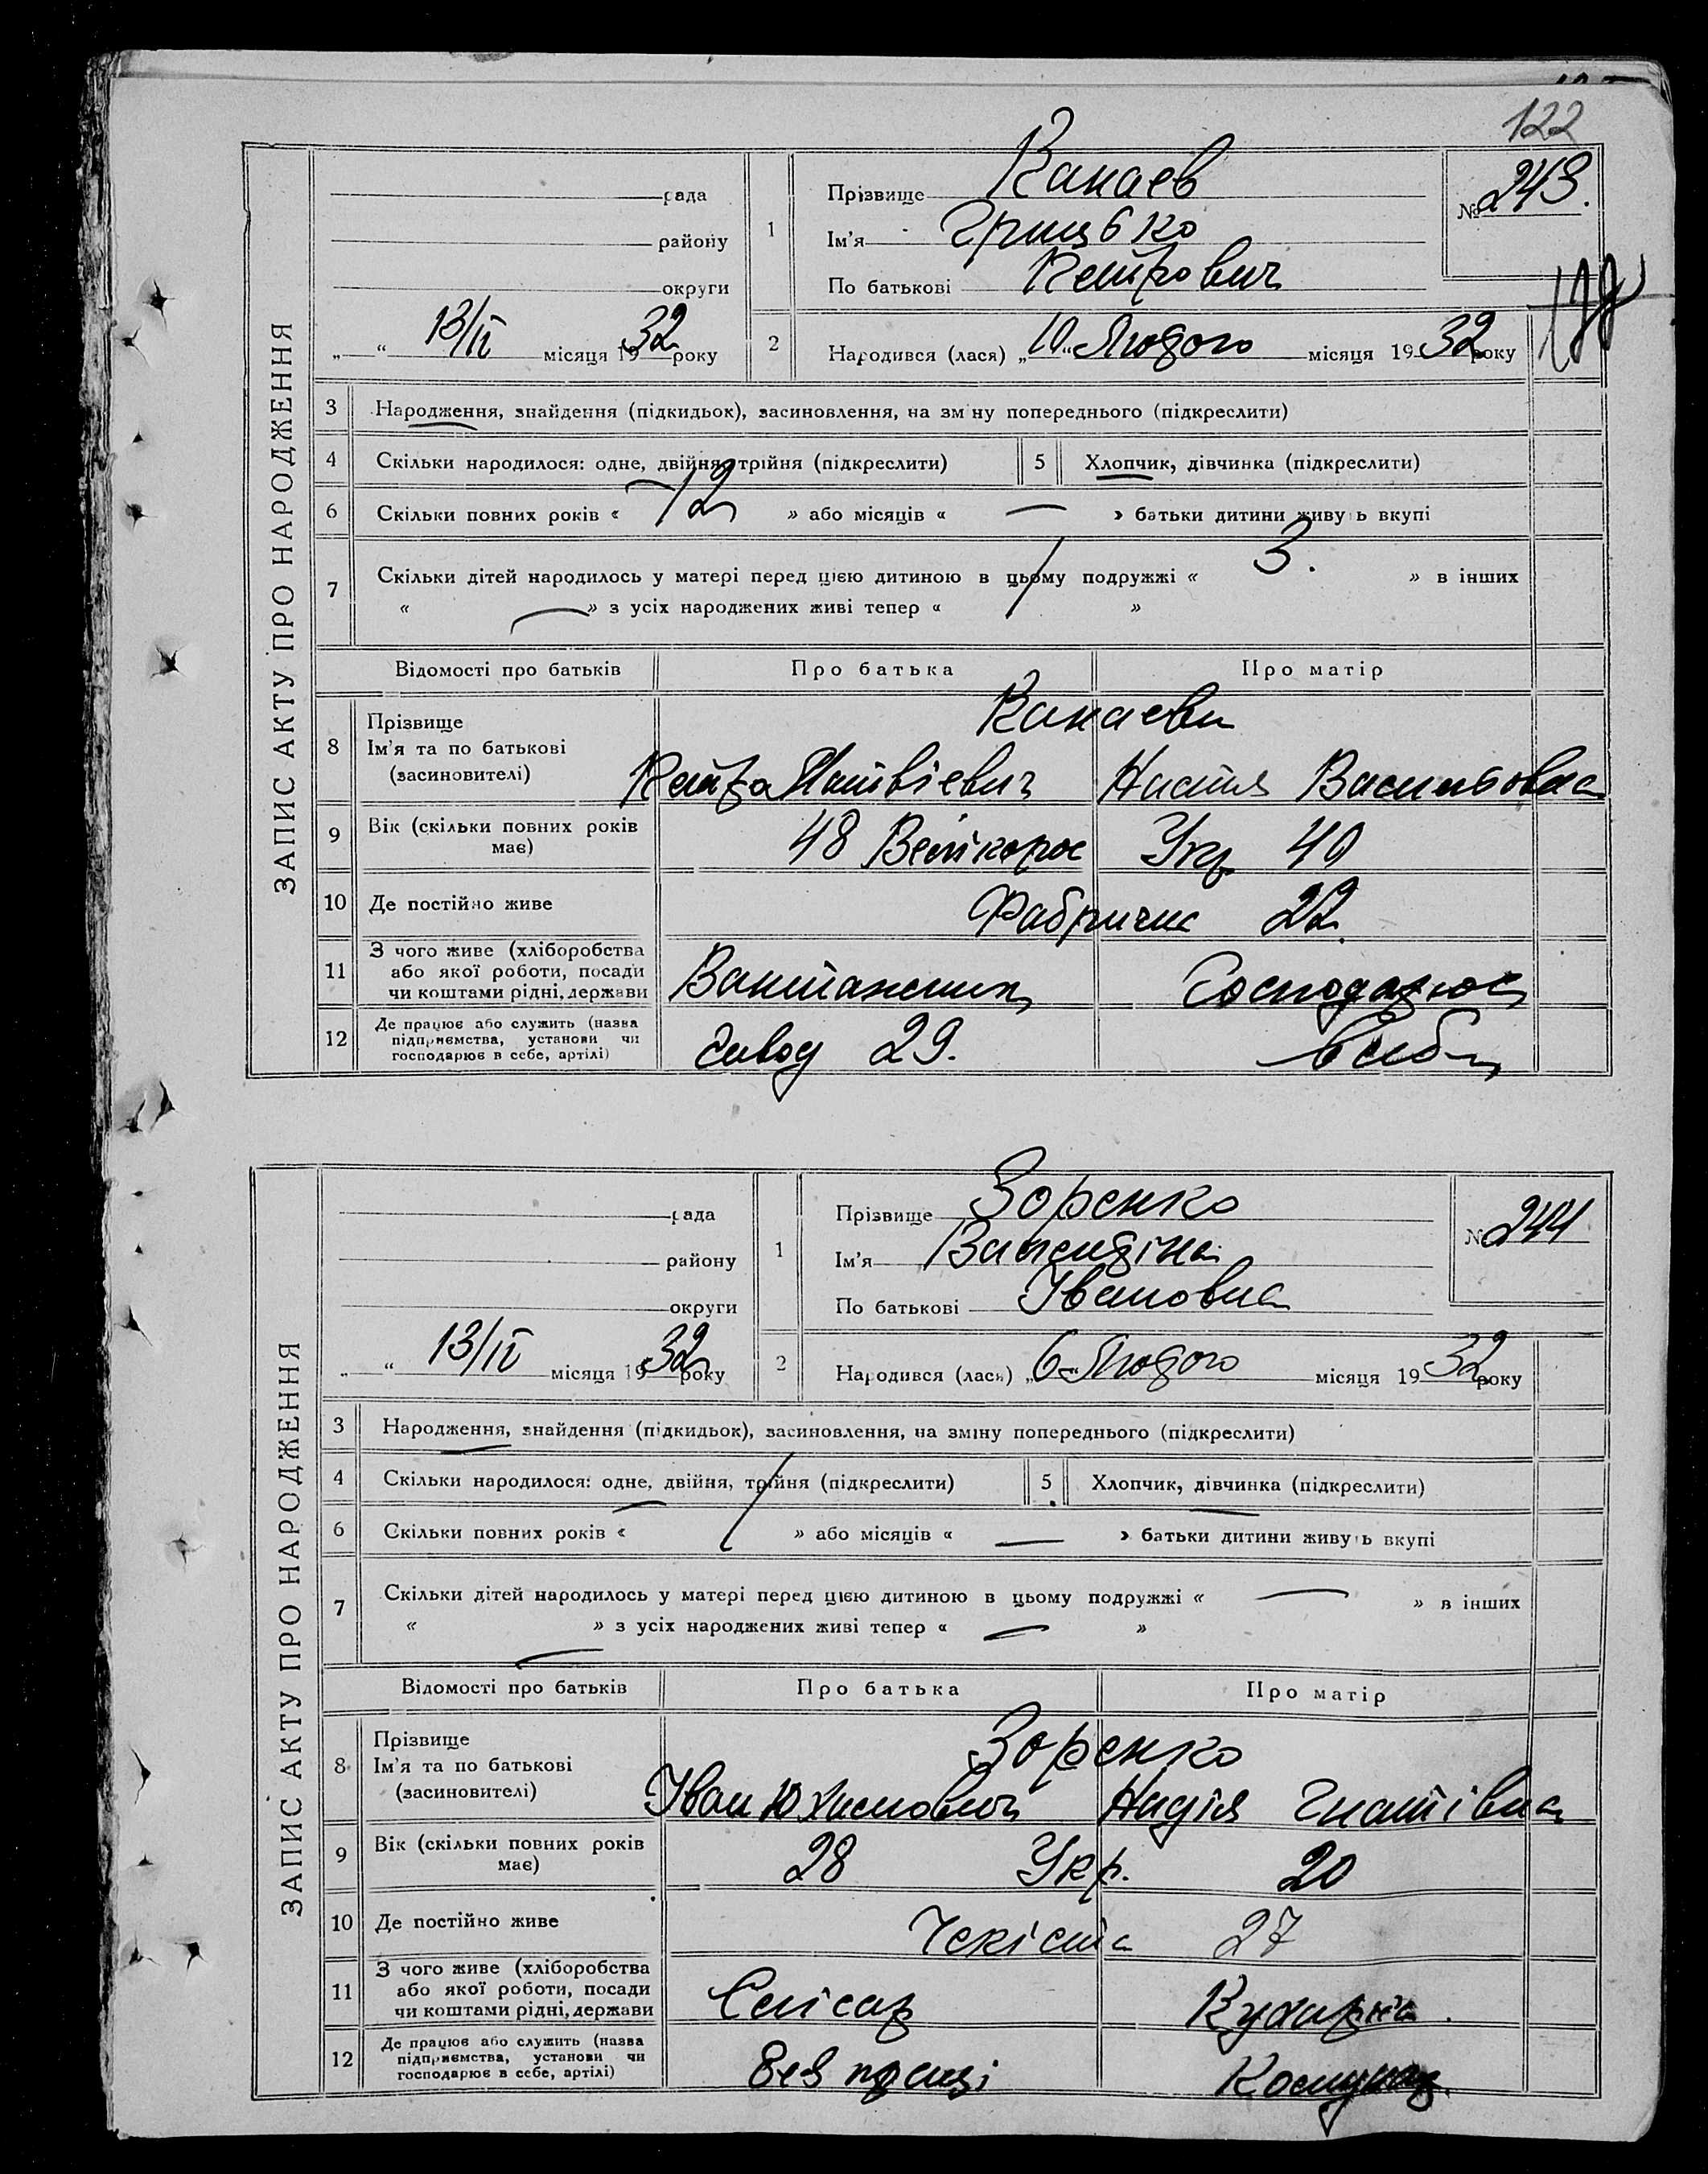 122
ЗАПИС АКТУ ПРО НАРОДЖЕННЯ
рада
району
округи
„ “ 13/ІІ місяця 1932 року
1
Прізвище Канаев
Ім'я Грицько
По батькові Петрович
№ 243.
2
Народився (лася) „10“ Лютого місяця 1932 року
3 Народження, знайдення (підкидьок), засиновлення, на зміну попереднього (підкреслити)
4 Скільки народилося: одне, двійня, трійня (підкреслити)
5 Хлопчик, дівчинка (підкреслити)
6 Скільки повних років « 12 » або місяців « — » батьки дитини живуть вкупі
7 Скільки дітей народилось у матері перед цією дитиною в цьому подружжі « 3. » в інших
« — » з усіх народжених живі тепер « »
Відомості про батьків Про батька Про матір
8 Прізвище
Ім'я та по батькові
(засиновителі)
Канаеви
Петро Матвієвич Настя Васильовна
9 Вік (скільки повних років
має)
48 Велікорос Укр 40
10 Де постійно живе
Фабрична 22.
11 З чого живе (хліборобства
або якої роботи, посади
чи коштами рідні, держави
Вантажник Господарює
12 Де працює або служить (назва
підприємства, установи чи
господарює в себе, артілі)
Завод 29. в себе
ЗАПИС АКТУ ПРО НАРОДЖЕННЯ
рада
району
округи
„ “ 13/ІІ місяця 1932 року
1
Прізвище Зоренко
Ім'я Валендіна
По батькові Івановна
№ 244
2
Народився (лася) „6“ Лютого місяця 1932 року
3 Народження, знайдення (підкидьок), засиновлення, на зміну попереднього (підкреслити)
4 Скільки народилося: одне, двійня, трійня (підкреслити)
5 Хлопчик, дівчинка (підкреслити)
6 Скільки повних років « 1 » або місяців « — » батьки дитини живуть вкупі
7 Скільки дітей народилось у матері перед цією дитиною в цьому подружжі « — » в інших
« — » з усіх народжених живі тепер « — »
Відомості про батьків Про батька Про матір
8 Прізвище
Ім'я та по батькові
(засиновителі)
Зоренко
Іван Юхимович Надія Гнатівна
9 Вік (скільки повних років
має)
28 Укр. 20
10 Де постійно живе
Чекіста 27
11 З чого живе (хліборобства
або якої роботи, посади
чи коштами рідні, держави
Слісар Кухарка.
12 Де працює або служить (назва
підприємства, установи чи
господарює в себе, артілі)
Без праці Комунар.